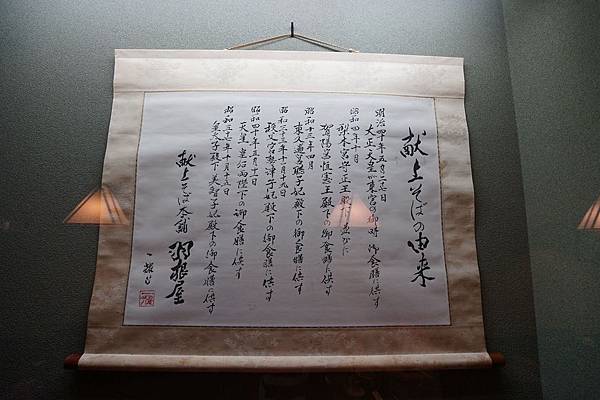 献上そばの由来
明治四十年五月二十二日
大正天皇が東宮の御時 御食膳に供す
昭和四年十月
梨本宮守正王殿下並びに
賀陽宮恒憲王殿下の御食膳に供す
昭和十三年四月
東久邇宮聡子妃殿下の御食膳に供す
昭和二十三年十一月十九日
秩父宮勢津子妃殿下の御食膳に供す
昭和四十年五月十一日
天皇皇后両陛下の御食膳に供す
皇太子殿下美智子妃殿下の御食膳に供す
献上そば本舗 羽根屋